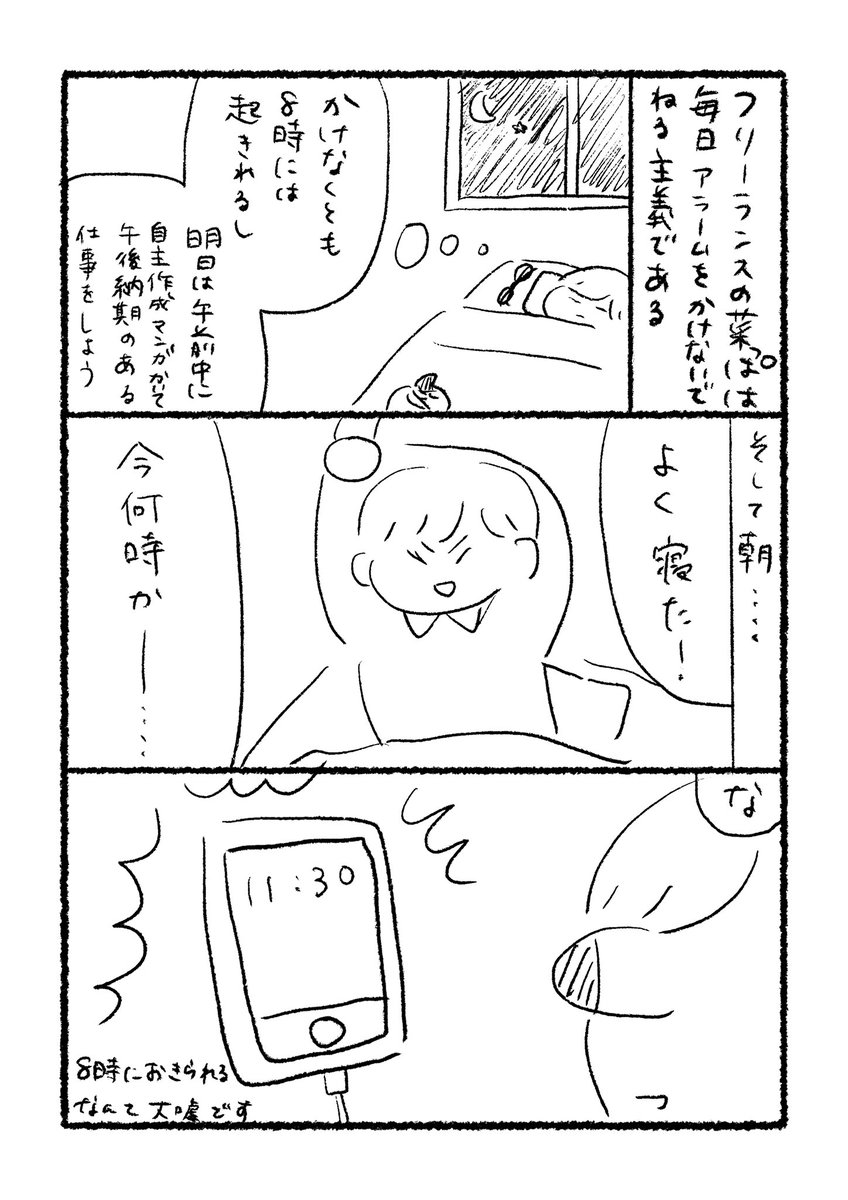 フリーランスの菜っぱは
毎日アラームをかけないで
ねる主義である
かけなくとも
8時には
起きれるし
明日は午前中に
自主作成マンガかいて
午後納期のある
仕事をしよう
そして朝……
よく寝たー!
今何時かー……
な
11:30
っ
8時におきられる
なんて大嘘です